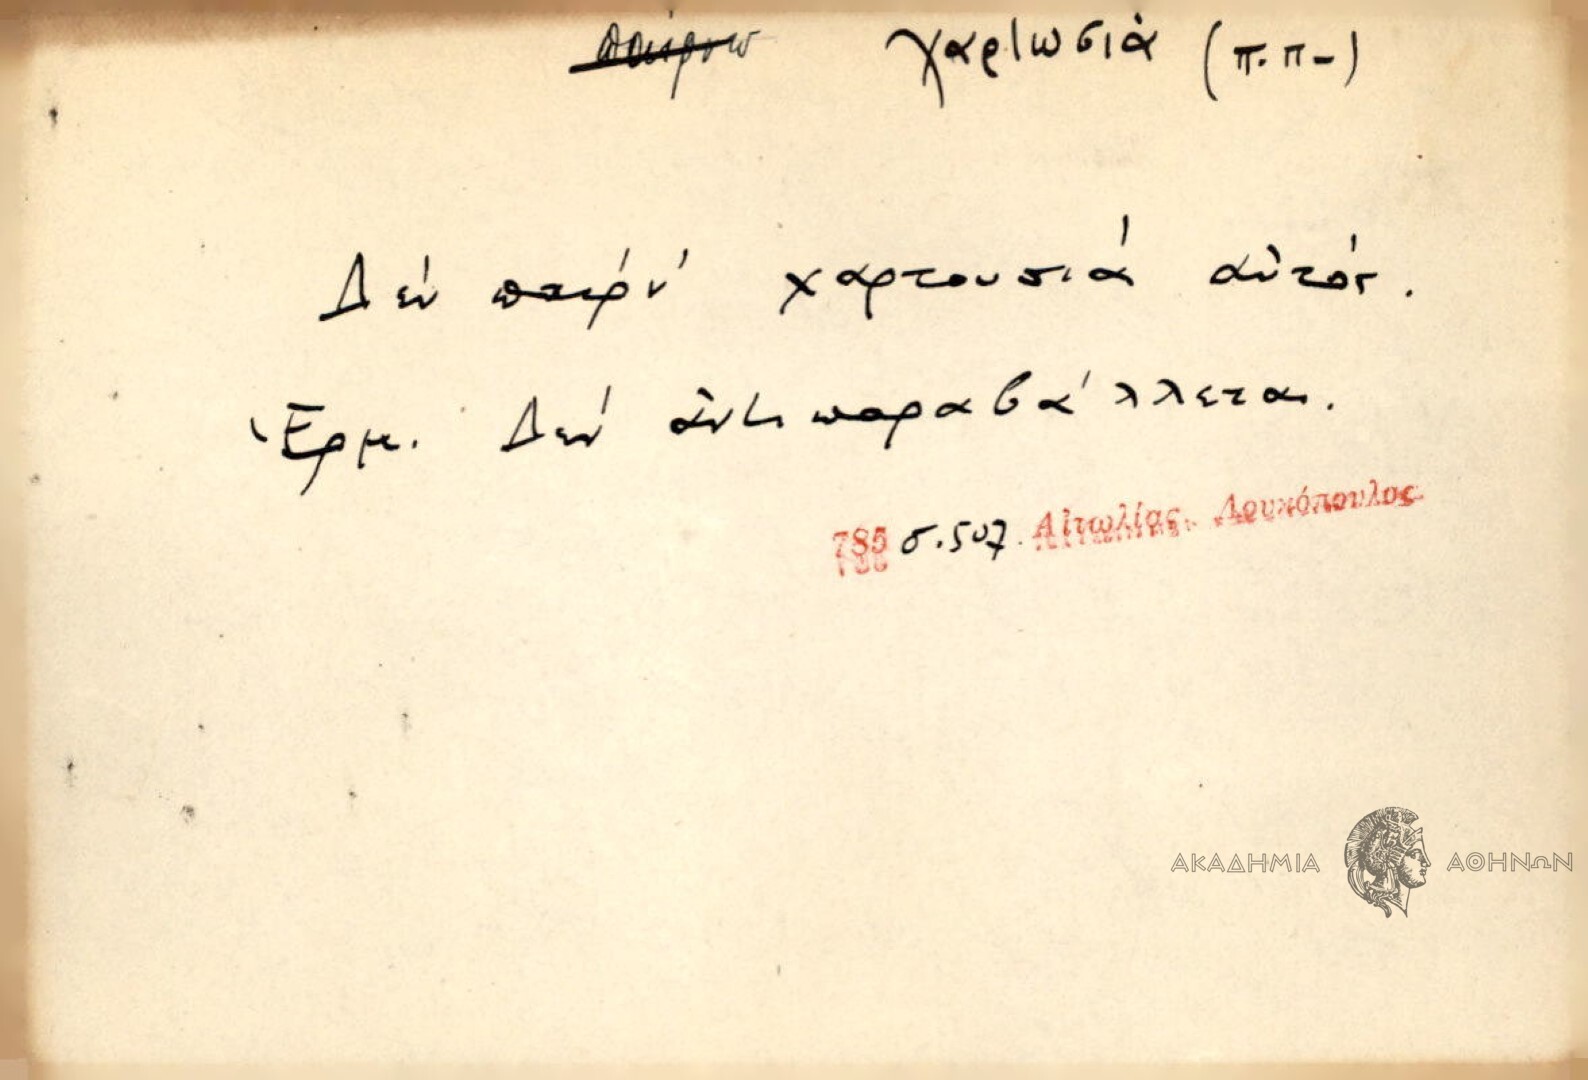 παίρνω χαρτωσιὰ (π.π-)
Δέν παίρν' χαρτουσιά αὐτός.
Ἑρμ. Δέν ἀντιπαραβάλλεται.
785 σ.507. Αἰτωλίας, Λουκόπουλος
ΑΚΑΔΗΜΙΑ ΑΘΗΝΩΝ